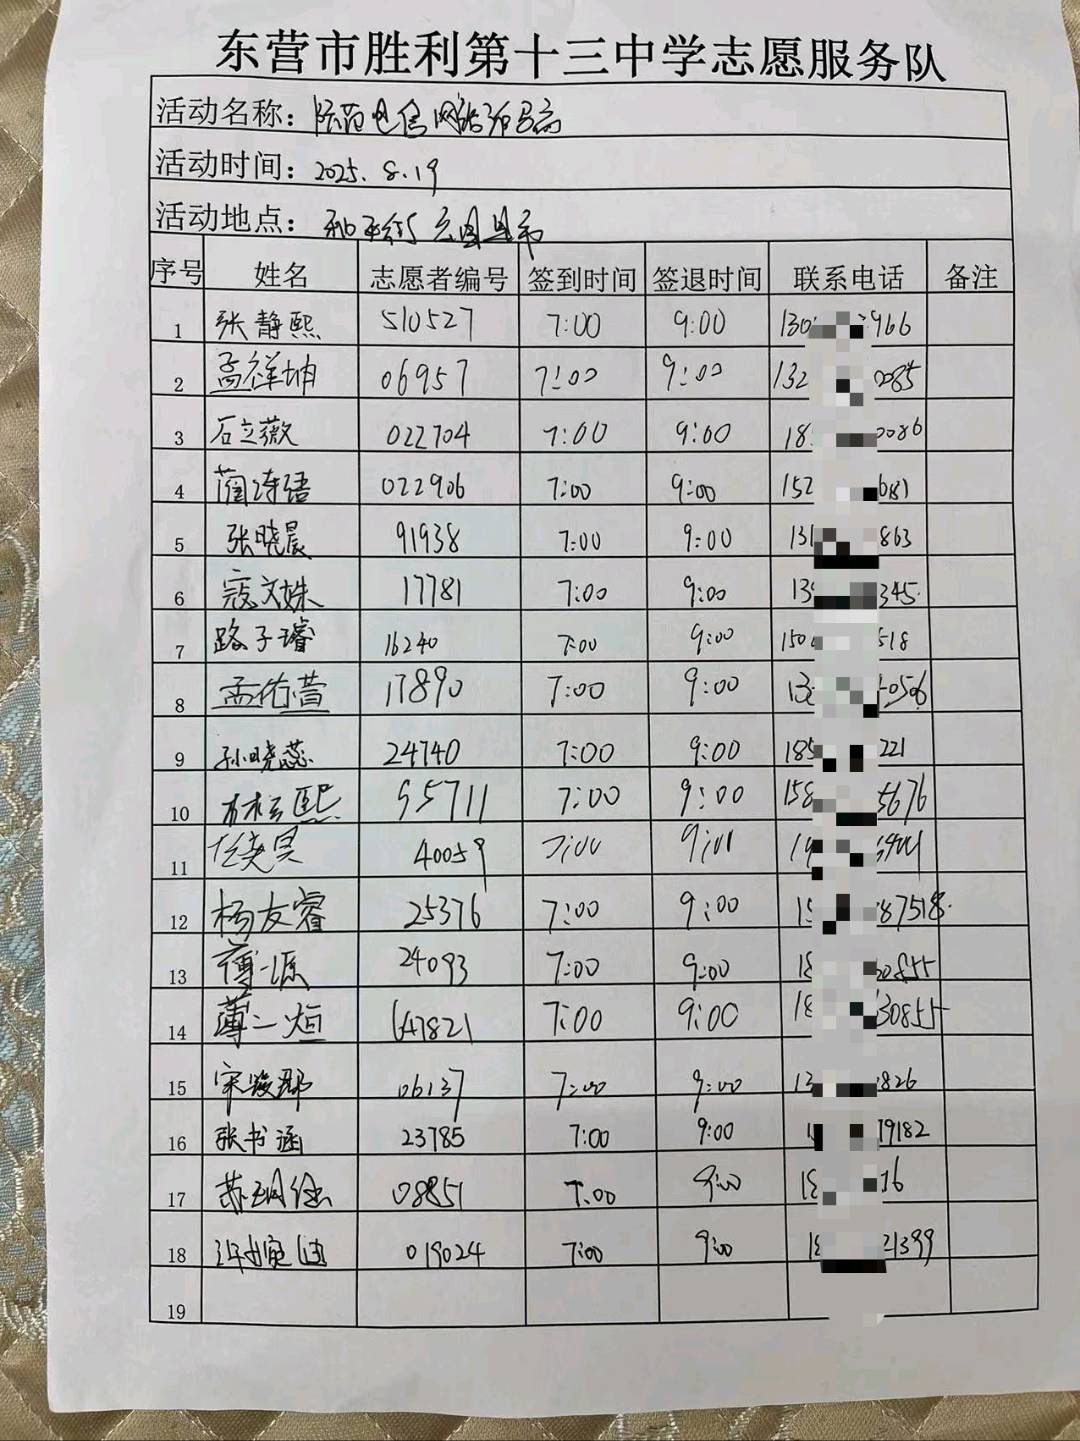 东营市胜利第十三中学志愿服务队
活动名称: 防范电信网络诈骗
活动时间: 2025.8.19
活动地点:
序号 姓名 志愿者编号 签到时间 签退时间 联系电话 备注
1 张静熙 510527 7:00 9:00 130 966
2 孟祥坤 06957 7:00 9:00 132 0085
3 石立薇 022704 7:00 9:00 18 0086
4 蔺诗语 022906 7:00 9:00 152 681
5 张晓晨 91938 7:00 9:00 131 863
6 寇文姝 17781 7:00 9:00 13 345
7 路子璿 16240 7:00 9:00 150 518
8 孟佑萱 17890 7:00 9:00 13 0506
9 孙晓蕊 24740 7:00 9:00 185 221
10 95711 7:00 9:00 158 5676
11 40059 7:00 9:00 1
12 杨友睿 25376 7:00 9:00 15 87518
13 薄一源 24093 7:00 9:00 18 0855
14 薄一烜 647821 7:00 9:00 18 30855
15 06137 7:00 9:00 13 826
16 张书涵 23785 7:00 9:00 1 79182
17 08851 7:00 9:00 18 16
18 019024 7:00 9:00 18 21399
19